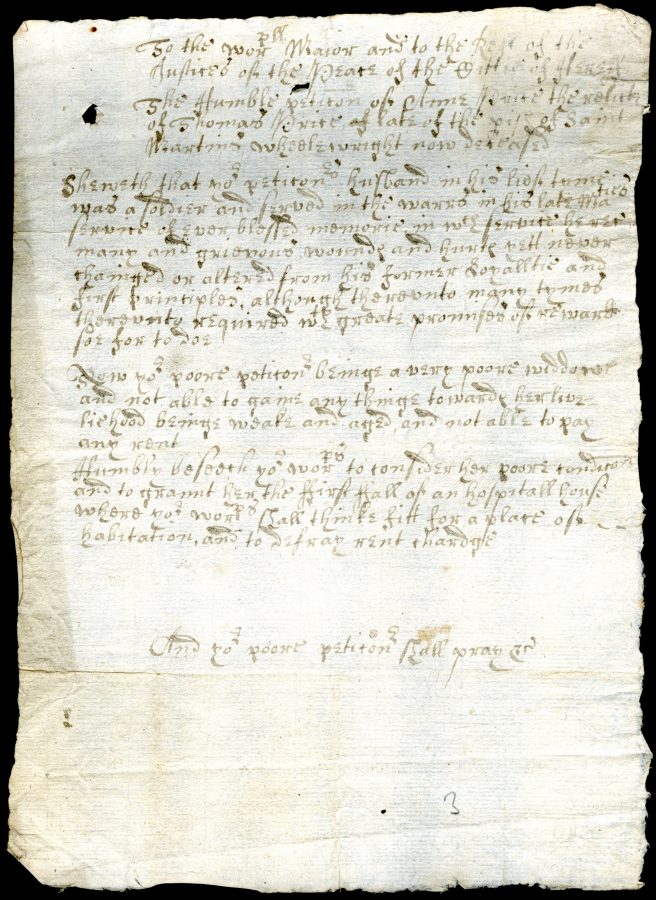 To the worpll Maior and to the Rest of the
Justices of the Peace of the Cittie of Heref
The Humble peticon of Anne Price the relict
of Thomas Price of late of the pish of Saint
Martins wheelewright now deceased
Sheweth that yor peticonrs husband in his lide tyme
was a soldier and served in the warrs in his late Maties
service of ever blessed memorie in wch service he rec
many and grievous wounds and hurts yett never
chainged or altered from his former Loyalltie and
first principles, although therevnto many tymes
therevnto required wth greate promises of reward
soe for to doe
Now yor poore peticonr beinge a very poore widdowe
and not able to gaine any thinge towards her live-
liehood beinge weake and aged, and not able to pay
any rent
Humbly beseech yor worpps to consider her poore condicon
and to graunt her the ffirst ffall of an hospitall house
where yor worpps shall thinke fitt for a place of
habitation, and to defray rent chardge
And yor poore peticonr shall pray &c
3